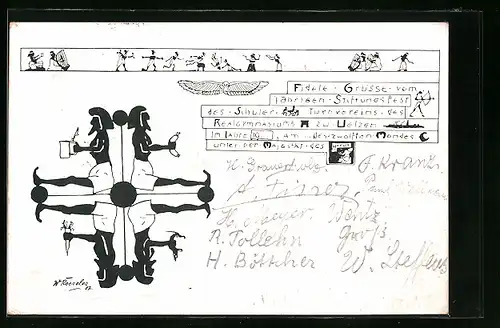 Fidele Grüsse vom
jährigen Stiftungsfest
des Schüler Turnvereins des
Realgymnasiums zu Uelzen
im Jahre 19 am des zwölften Mondes
unter der Majestät des
H. Grauerholz. F. Kranz.
A. Paul
H. Meyer. Wentz
R. Tollehn Groß
H. Böttcher W. Steffens